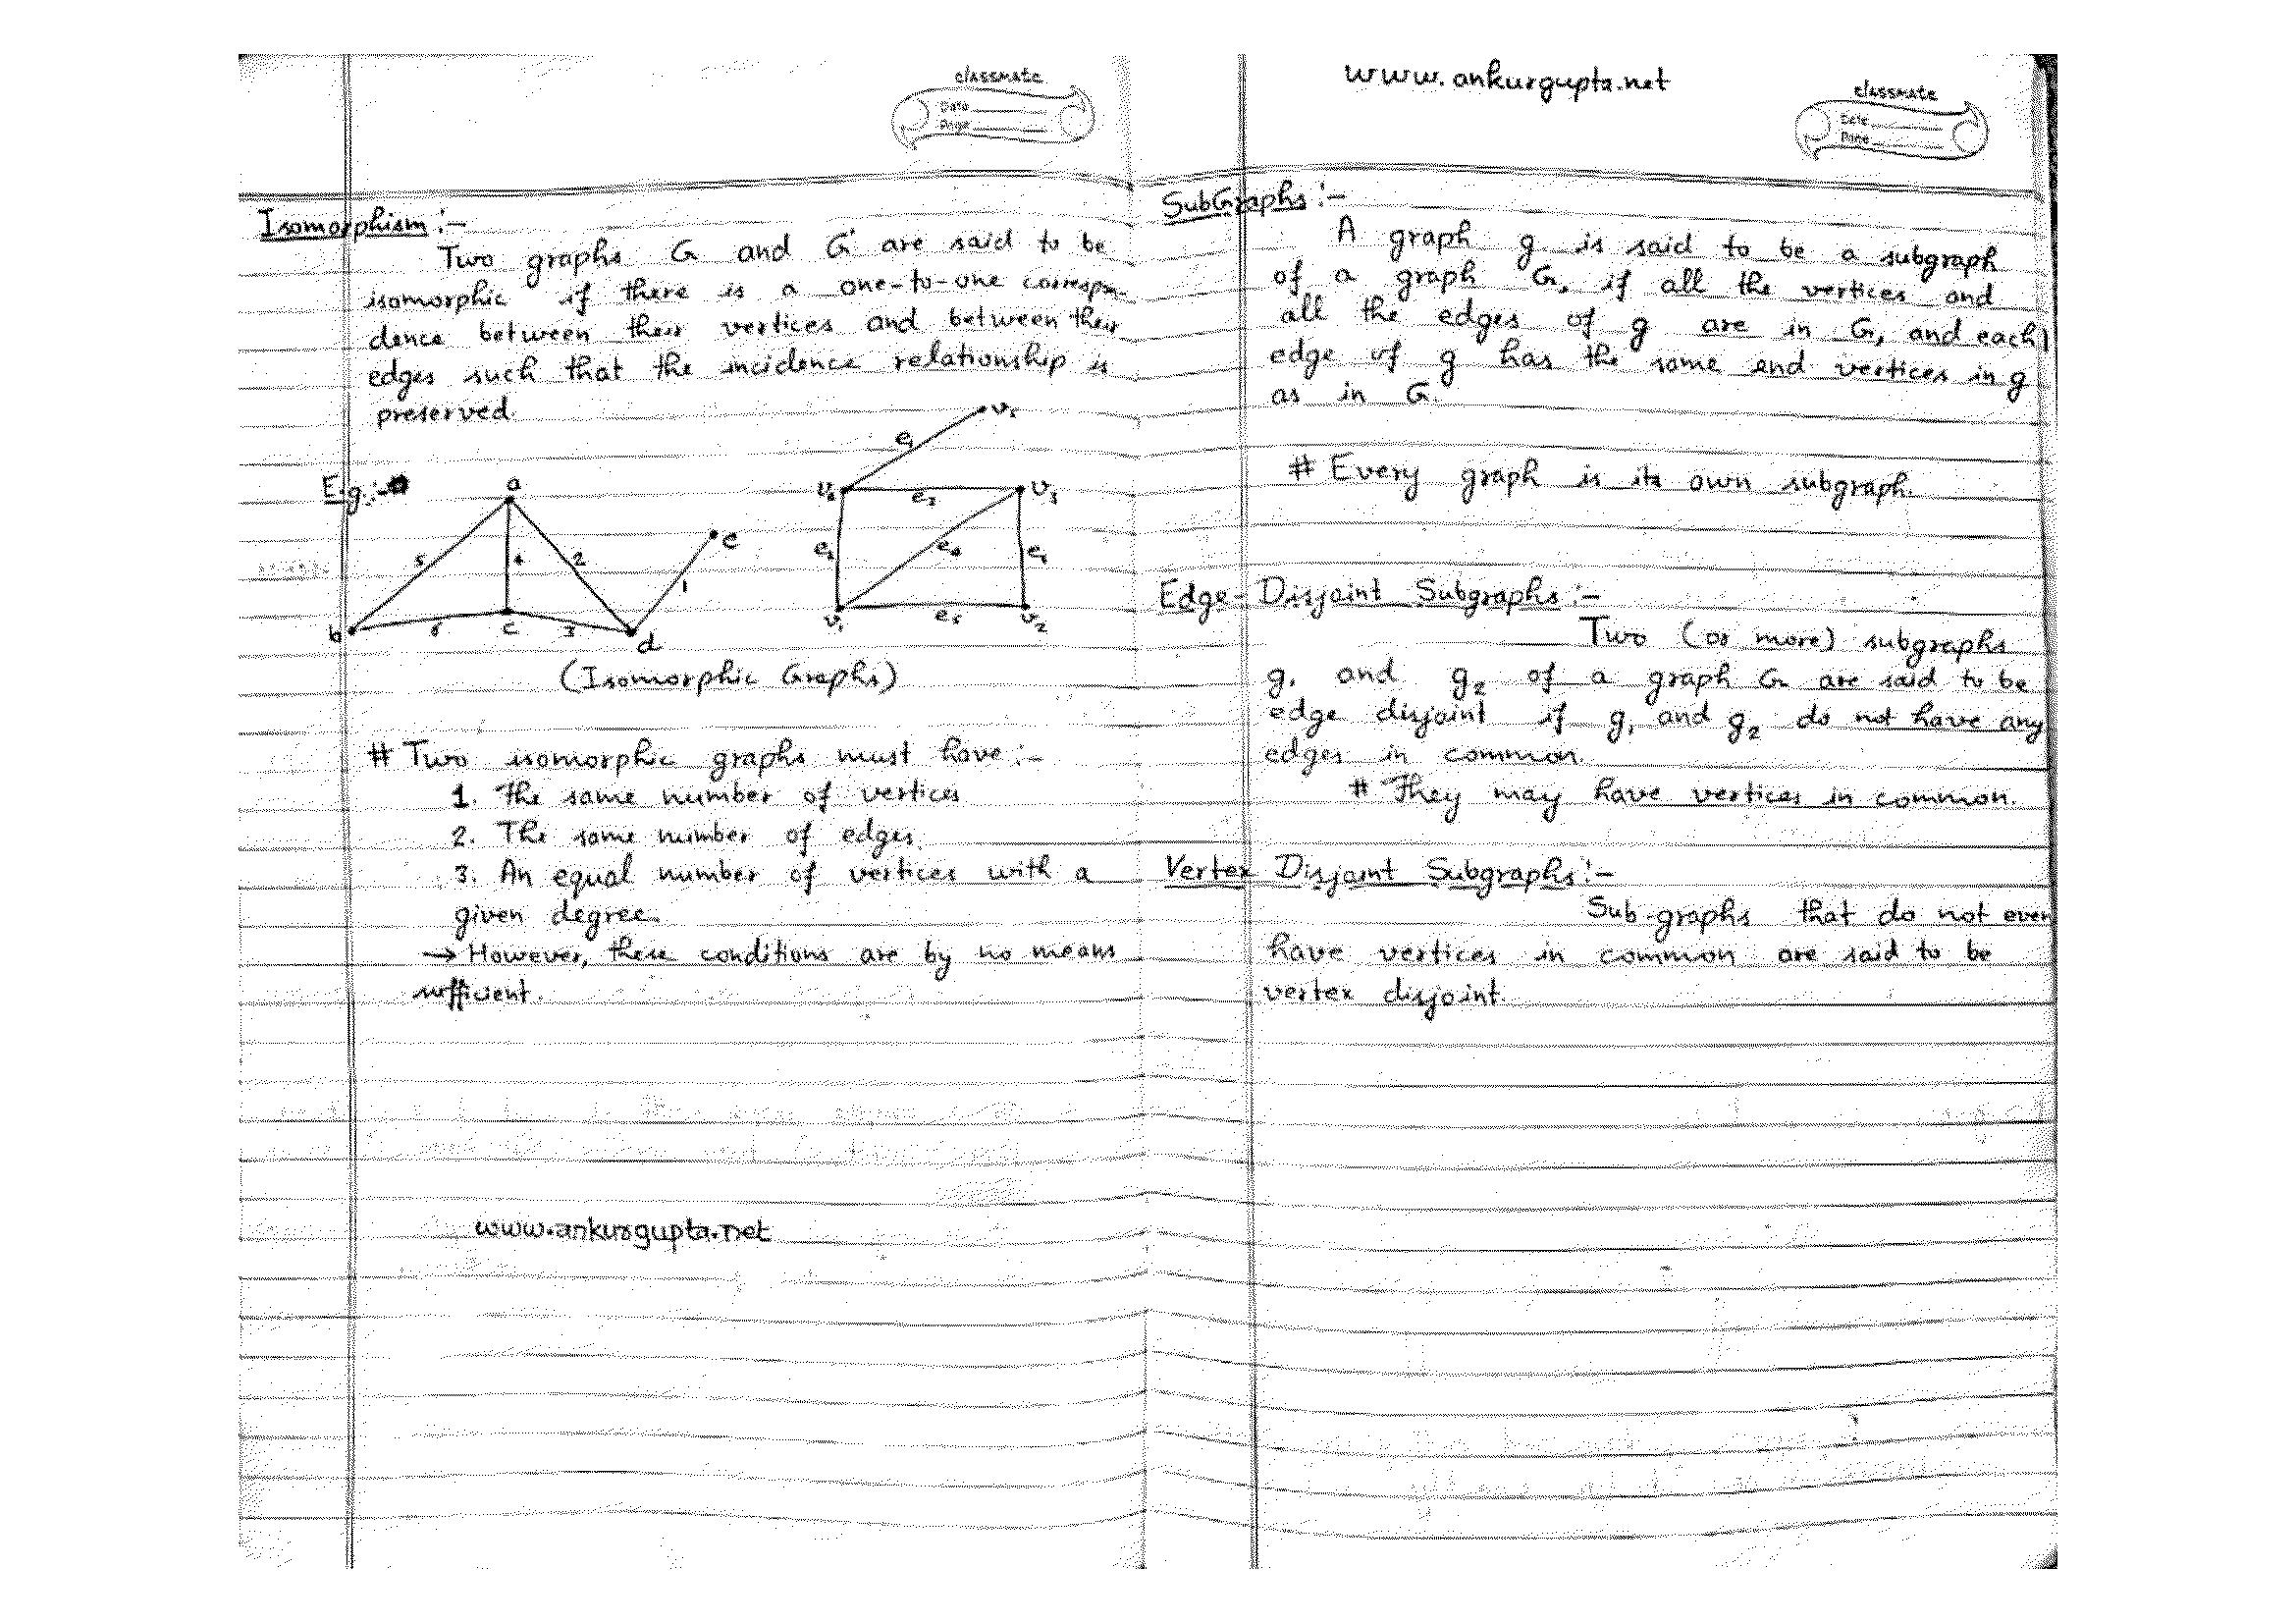 classmate
Date
Page
Isomorphism :-
Two graphs G and G' are said to be
isomorphic if there is a one-to-one correspon-
dence between their vertices and between their
edges such that the incidence relationship is
preserved.
E.g.:-
a
b
c
d
e
5
4
2
1
6
3
v₁
v₃
v₂
e₅
(Isomorphic Graphs)
# Two isomorphic graphs must have :-
1. The same number of vertices
2. The same number of edges.
3. An equal number of vertices with a
given degree.
→ However, these conditions are by no means
sufficient.
www.ankurgupta.net
www.ankurgupta.net
classmate
Date
Page
SubGraphs :-
A graph g is said to be a subgraph
of a graph G, if all the vertices and
all the edges of g are in G, and each
edge of g has the same end vertices in g
as in G.
# Every graph is its own subgraph.
Edge-Disjoint Subgraphs :-
Two (or more) subgraphs
g₁ and g₂ of a graph G are said to be
edge disjoint if g₁ and g₂ do not have any
edges in common.
# They may have vertices in common.
Vertex Disjoint Subgraphs :-
Sub-graphs that do not even
have vertices in common are said to be
vertex disjoint.